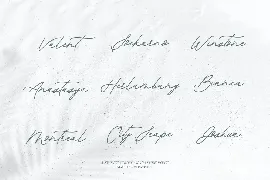 Valent Soekarno Winstone
Anastasye Herlambang Bianca
Montreal City Scape Joshua